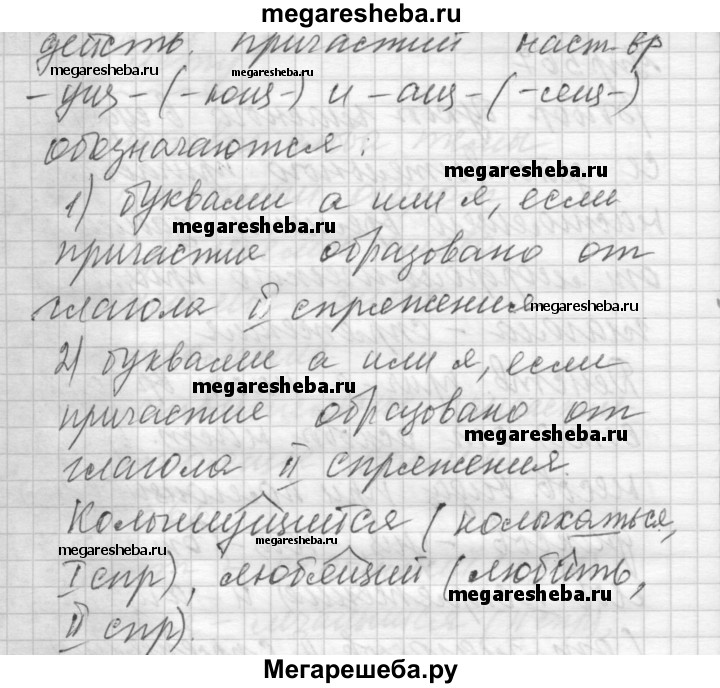 megaresheba.ru
действ. причастий наст. вр
megaresheba.ru megaresheba.ru
-ущ- (-ющ-) и -ащ- (-сещ-)
обозначаются:
megaresheba.ru
1) буквами а или я, если
megaresheba.ru
причастие образовано от
глагола II спряжения
megaresheba.ru
2) буквами а или я, если
megaresheba.ru
причастие образовано от
megaresheba.ru
глагола II спряжения.
Колышущийся (колыхаться,
megaresheba.ru megaresheba.ru
I спр), любящий (любить,
megaresheba.ru
II спр).
Мегарешеба.ру